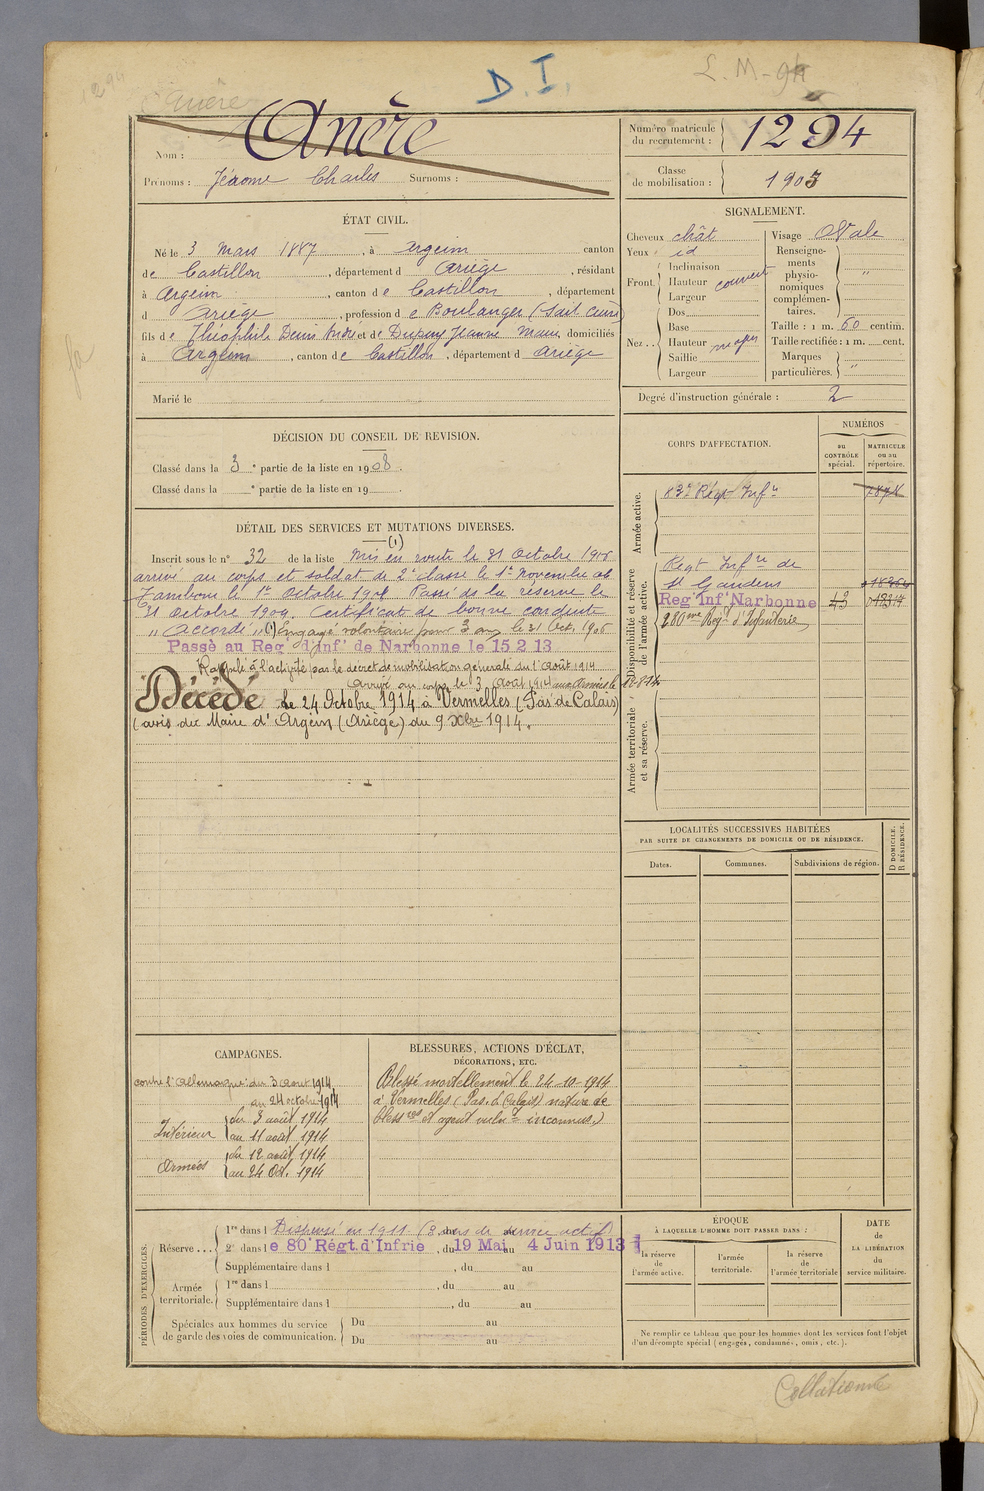 1294
Anère
D. I.
L. M-94
Nom : Anère
Prénoms : Jérome Charles Surnoms :
Numéro matricule
du recrutement : 1294
Classe
de mobilisation : 1903
ÉTAT CIVIL.
Né le 3 Mars 1887, à Argein canton
de Castillon, département d Ariège, résidant
à Argein, canton de Castillon, département
d Ariège, profession de Boulanger (sait cuire)
fils de Théophile Denis André et de Dupuy Jeanne Marie domiciliés
à Argein, canton de Castillon, département d Ariège
Marié le
SIGNALEMENT.
Cheveux chât
Yeux id
Front.
Inclinaison
Hauteur couvert
Largeur
Nez ..
Dos
Base
Hauteur moyen
Saillie
Largeur
Visage Ovale
Renseigne-
ments
physio-
nomiques
complémen-
taires. "
Taille : 1 m. 60 centim.
Taille rectifiée : 1 m. cent.
Marques
particulières. "
Degré d'instruction générale : 2
DÉCISION DU CONSEIL DE REVISION.
Classé dans la 3 e partie de la liste en 1908.
Classé dans la e partie de la liste en 19 .
DÉTAIL DES SERVICES ET MUTATIONS DIVERSES.
(1)
Inscrit sous le n° 32 de la liste Mis en route le 31 Octobre 1906
arrivé au corps et soldat de 2e classe le 1er Novembre 06
Tambour le 1er Octobre 1908 Passé de la réserve le
31 Octobre 1909. Certificat de bonne conduite
" Accordé " (1) Engagé volontaire pour 3 ans le 31 Oct. 1906
Passé au Reg d'Inf' de Narbonne le 15 2 13
Rappelé à l'activité par le décret de mobilisation générale du 1er Août 1914
Arrivé au corps le 3 Août 1914 aux Armées le 12-8-14
Décédé le 24 Octobre 1914 à Vermelles (Pas de Calais)
(avis du Maire d'Argein (Ariège) du 9 Xbre 1914.
CORPS D'AFFECTATION.
NUMÉROS
DU
CONTRÔLE
spécial.
MATRICULE
ou au
répertoire.
Armée active.
83e Régt Infie
Disponibilité et réserve
de l'armée active.
Régt Infie de
St Gaudens
Reg Inf' Narbonne 43 01231
280me Régt d'Infanterie
Armée territoriale
et sa réserve.
LOCALITÉS SUCCESSIVES HABITÉES
PAR SUITE DE CHANGEMENTS DE DOMICILE OU DE RÉSIDENCE.
Dates.
Communes.
Subdivisions de région.
D DOMICILE.
R RÉSIDENCE.
CAMPAGNES.
contre l'Allemagne: du 3 Août 1914
au 24 octobre 1914
Intérieur
du 3 août 1914
au 11 août 1914
Armées
du 12 août 1914
au 24 Oct. 1914
BLESSURES, ACTIONS D'ÉCLAT,
DÉCORATIONS, ETC.
Blessé mortellement le 24-10-1914
à Vermelles (Pas. d. Calais) nature de
bless res et agent vulnt inconnus.)
PÉRIODES D'EXERCICES.
Réserve ...
1re dans l Dispensé en 1911 (3 ans de service actif) du au
2e dans le 80 Régt. d'Infrie, du 19 Mai au 4 Juin 1913
Supplémentaire dans l , du au
Armée
territoriale.
1re dans l , du au
Supplémentaire dans l , du au
Spéciales aux hommes du service
de garde des voies de communication.
Du au
Du au
ÉPOQUE
À LAQUELLE L'HOMME DOIT PASSER DANS :
la réserve
de
l'armée active.
l'armée
territoriale.
la réserve
de
l'armée territoriale
DATE
de
LA LIBÉRATION
du
service militaire.
Ne remplir ce tableau que pour les hommes dont les services font l'objet
d'un décompte spécial (engagés, condamnés, omis, etc.).
Collationné